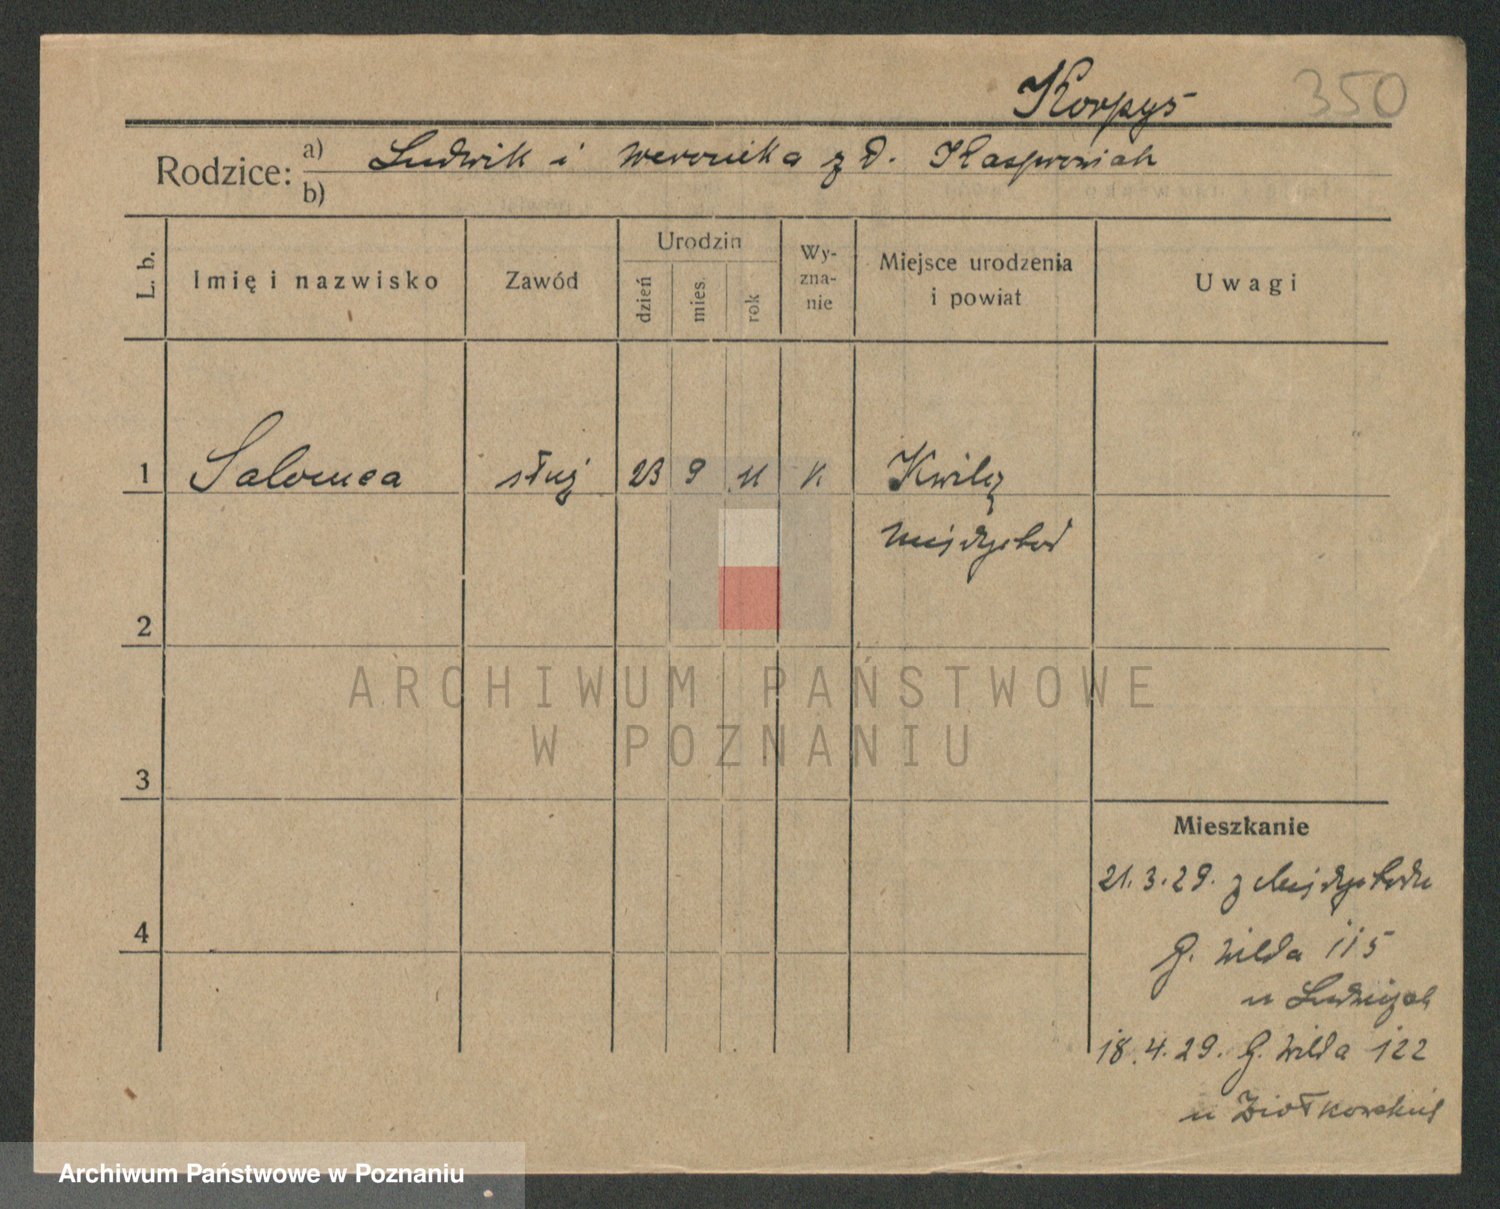 Korpys 350
Rodzice: a) Ludwik i Weronika z d. Kasprowiak
b)
L. b. Imię i nazwisko Zawód Urodzin dzień mies. rok Wy-zna-nie Miejsce urodzenia i powiat Uwagi
1 Salomea służ 23 9 11 k Kwilcz
Międzychod
2
ARCHIWUM PAŃSTWOWE
W POZNANIU
3
Mieszkanie
21.3.29. z Międzychodu
4
G. Wilda 115
u
18.4.29. G. Wilda 122
u Ziołkowskich
Archiwum Państwowe w Poznaniu